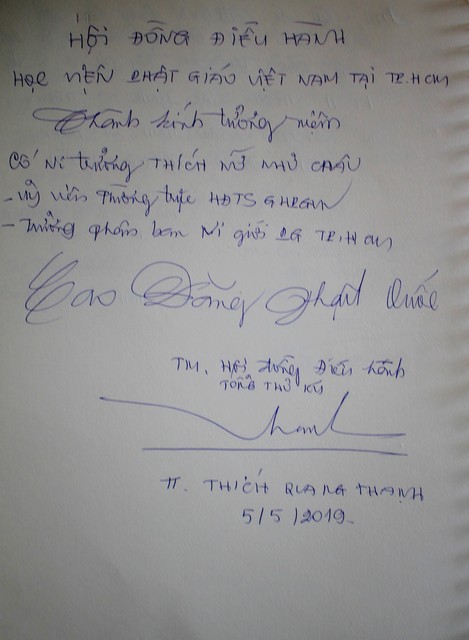 HỘI ĐỒNG ĐIỀU HÀNH
HỌC VIỆN PHẬT GIÁO VIỆT NAM TẠI TP.HCM
Thành kính tưởng niệm
CỐ Ni trưởng THÍCH NỮ NHƯ CHÂU
- Uỷ viên Thường trực HĐTS GHPGVN
- Trưởng phân ban Ni giới PG TP.HCM
Cao Đăng Phật Quốc
TM. Hội đồng Điều hành
TỔNG THƯ KÝ
TT. THÍCH QUANG THẠNH
5/5/2019